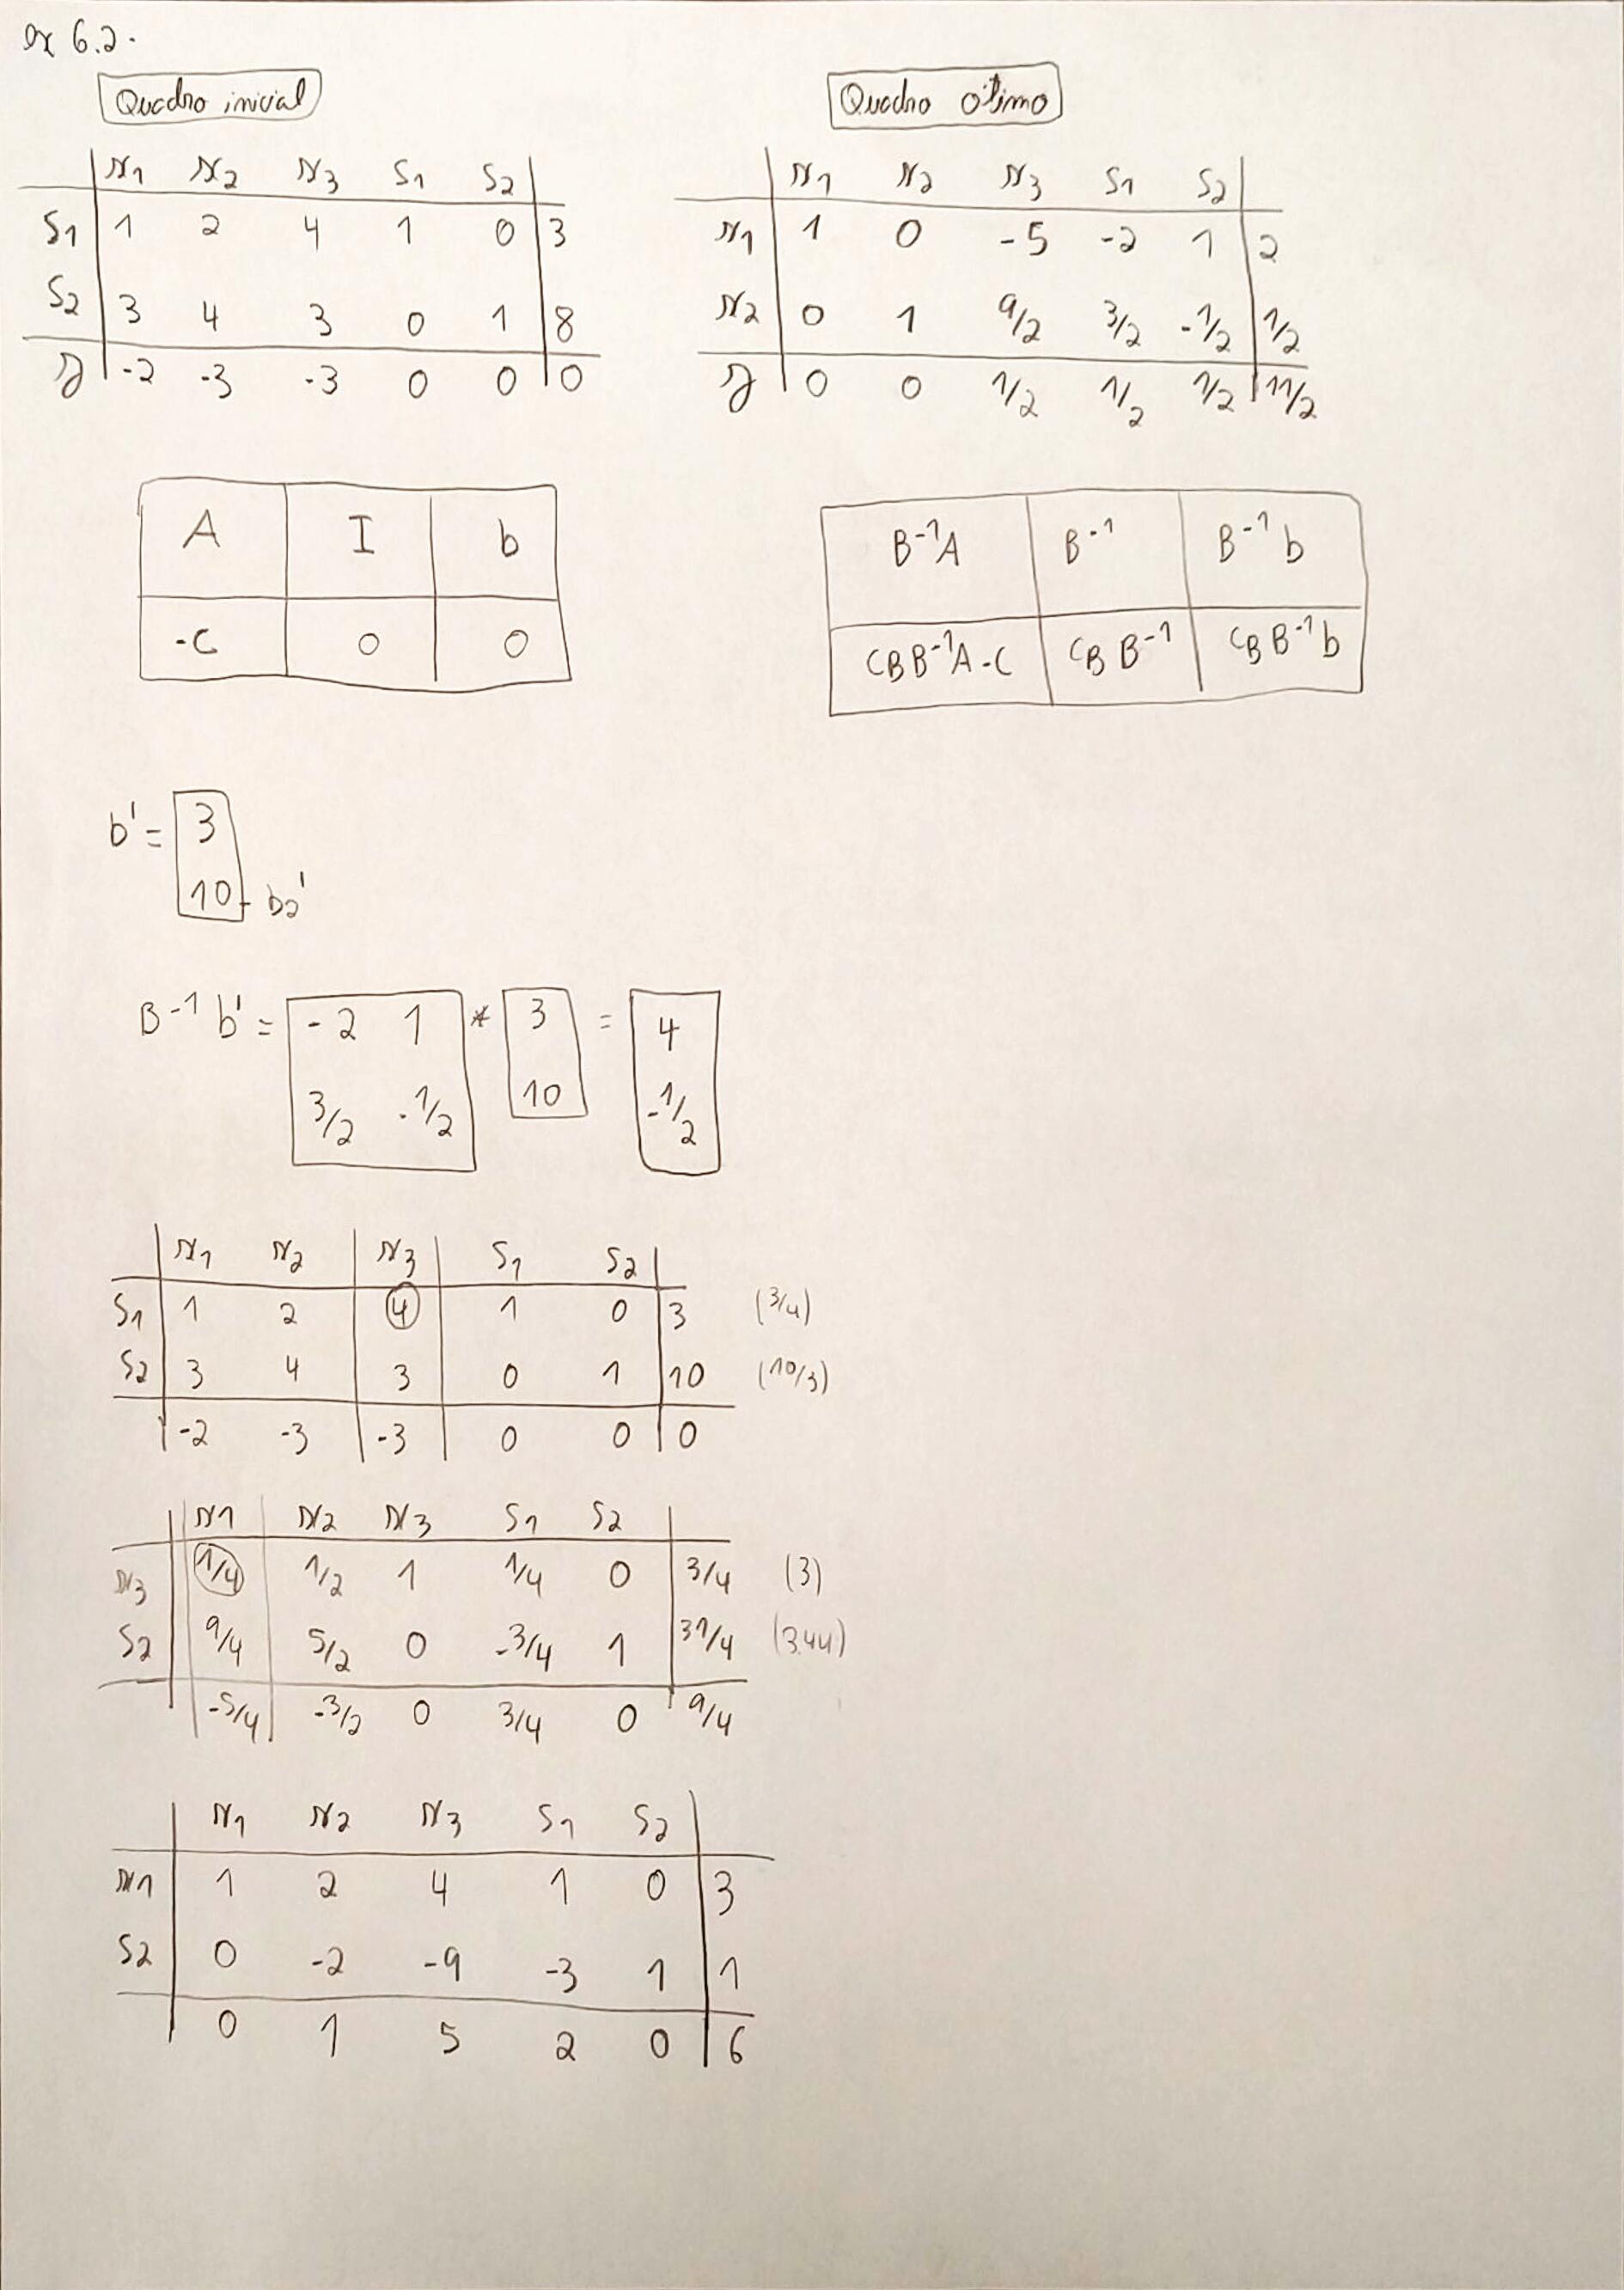 ex 6.2.
Quadro inicial
x1 x2 x3 s1 s2
s1 1 2 4 1 0 3
s2 3 4 3 0 1 8
z -2 -3 -3 0 0 0
Quadro ótimo
x1 x2 x3 s1 s2
x1 1 0 -5 -2 1 2
x2 0 1 9/2 3/2 -1/2 1/2
z 0 0 1/2 1/2 1/2 11/2
A I b
-C 0 0
B-1A B-1 B-1 b
CB B-1A -C CB B-1 CB B-1 b
b' = 3
10 b2'
B-1 b' = -2 1 * 3 = 4
3/2 -1/2 10 -1/2
x1 x2 x3 s1 s2
s1 1 2 4 1 0 3 (3/4)
s2 3 4 3 0 1 10 (10/3)
-2 -3 -3 0 0 0
x1 x2 x3 s1 s2
x3 1/4 1/2 1 1/4 0 3/4 (3)
s2 9/4 5/2 0 -3/4 1 31/4 (3.44)
-5/4 -3/2 0 3/4 0 9/4
x1 x2 x3 s1 s2
x1 1 2 4 1 0 3
s2 0 -2 -9 -3 1 1
0 1 5 2 0 6